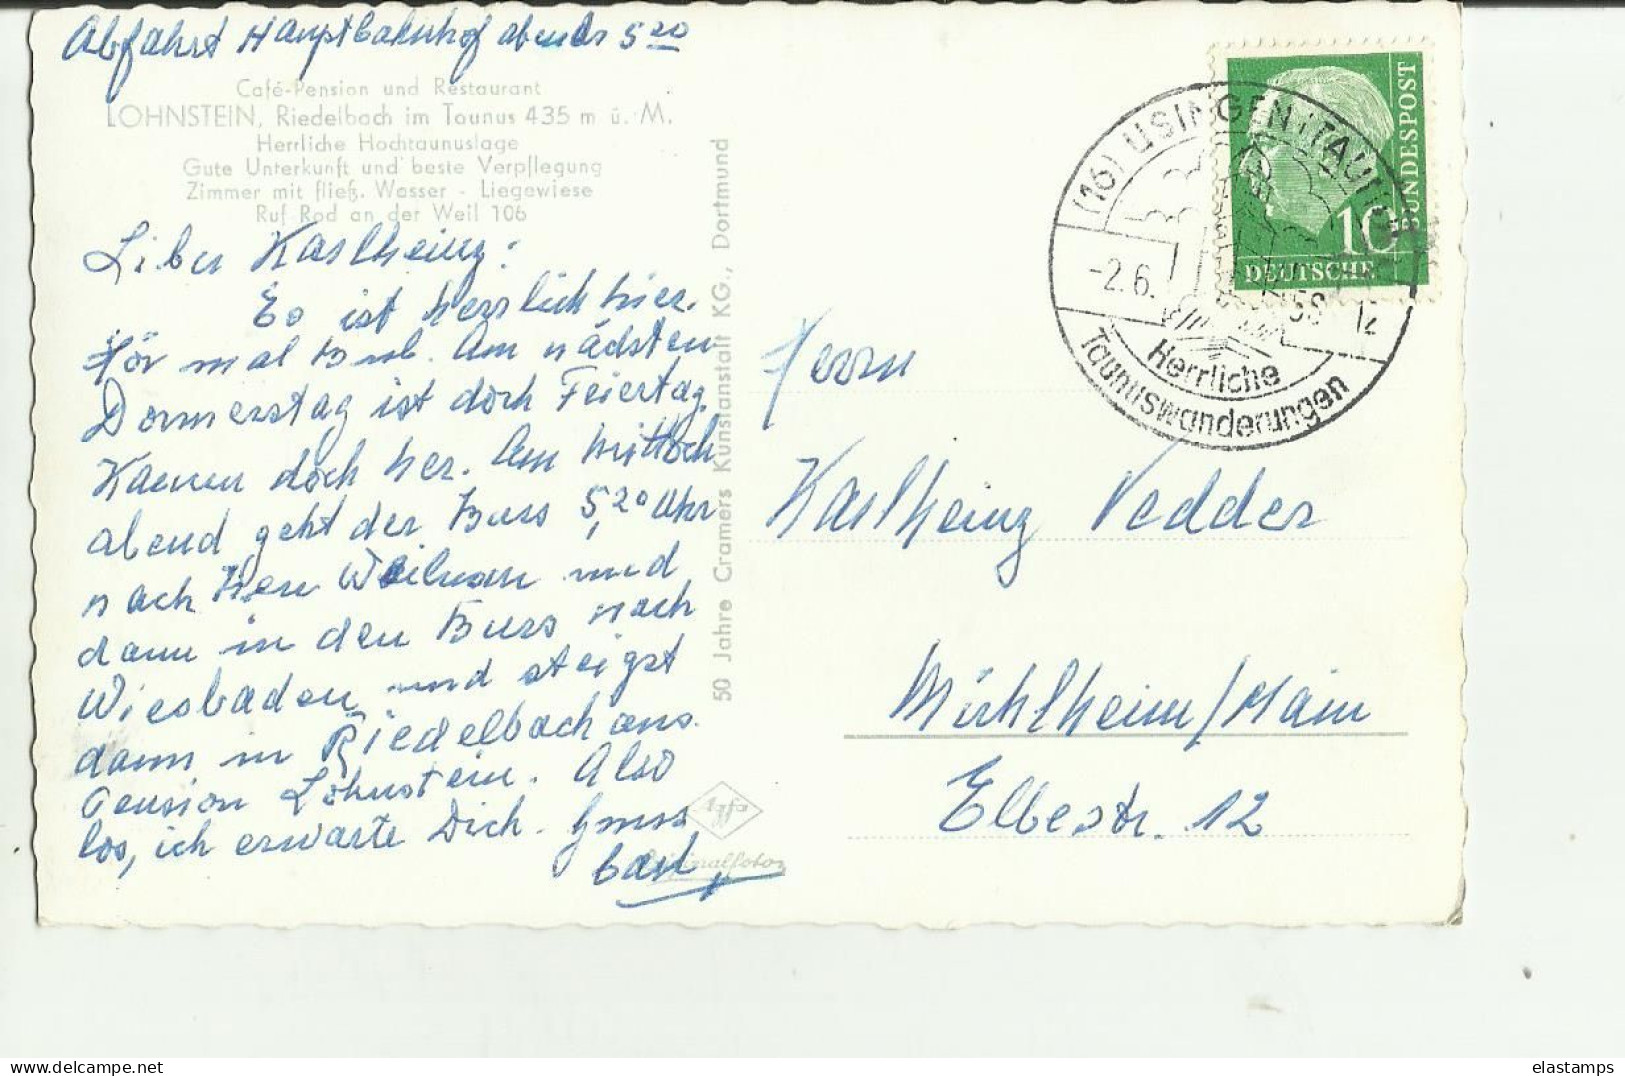 Abfahrt Hauptbahnhof abends 5 20
Café-Pension und Restaurant
LOHNSTEIN, Riedelbach im Taunus 435 m ü. M.
Herrliche Hochtaunuslage
Gute Unterkunft und beste Verpflegung
Zimmer mit fließ. Wasser - Liegewiese
Ruf Rod an der Weil 106
Liber Karlheinz!
Es ist herrlich hier.
Hör mal Bub. Am nädsten
Donnerstag ist doch Feiertag.
Komm doch her. Am Mittoch
abend geht der Buss 5,20 Uhr
nach Weilnau und
dann in den Buss nach
Wiesbaden und steigst
dann in Riedelbach aus.
Pension Lohnstein. Also
los, ich erwarte Dich. Gruss
50 Jahre Cramers Kunstanstalt KG., Dortmund
Agfa
Originalfoto
DEUTSCHE
BUNDESPOST
10
(16) USINGEN (TAUNUS)
-2.6.58 -12
Herrliche
Taunuswanderungen
Herrn
Karlheinz Vedder
Mühlheim/Main
Elbestr. 12
elastamps